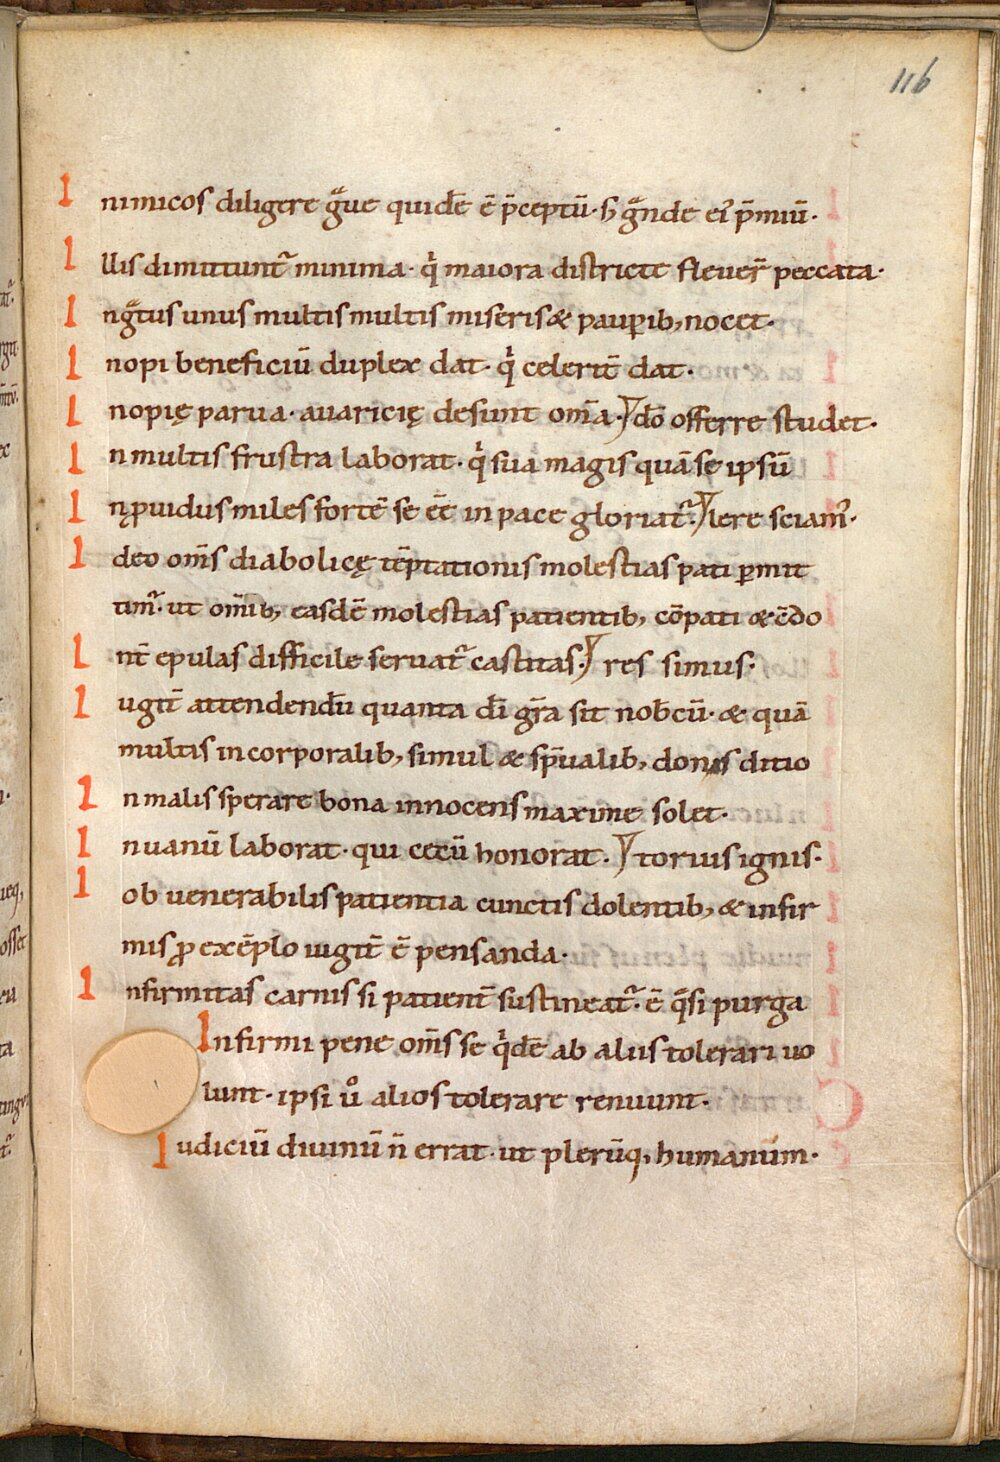 116
Inimicos diligere gᵃue quidē ē p̄ceptū· sꝫ gᵃnde ei᷒ p̄miū·
Illis dimittunt᷑ minima· qⁱ maiora districte fleuer̄ peccata·
Ingᵃtus unus multis multis miseris & paup̱ib; nocet·
Inopi beneficiū duplex dat· qⁱ celerit̄ dat·
Inopię parua· auaricię desunt om̄a· dō offerre studet·
In multis frustra laborat· qⁱ sua magis quā se ipsū
Inꝓuidus miles fortē se ēē in pace gloriat᷑· lere sciam᷒·
Ideo om̄s diabolicę tēptationis molestias pati p̱mit
tim᷑· ut om̄ib; easdē molestias patientib; cōpati & c̄do
Int̄ epulas difficile seruat᷑ castitas· res simus·
Iugit̄ attendendū quanta dī gr̄a sit nobcū· & quā
multis in corporalib; simul & sp̄ualib; donis ditio
In malis sperare bona innocens maxime solet·
In uanū laborat· qui cecū honorat· toruis ignis·
Iob uenerabilis patientia cunctis dolentib; & infir
mis ꝓ exēplo iugit̄ ē pensanda·
Infirmitas carnis si patient̄ sustineat᷑· ē qᵃsi purga
Infirmi pene om̄s se qⁱdē ab aliis tolerari uo
lunt· ipsi uº alios tolerare renuunt·
Iudiciū diuinū n̄ errat· ut plerūq; humanum·